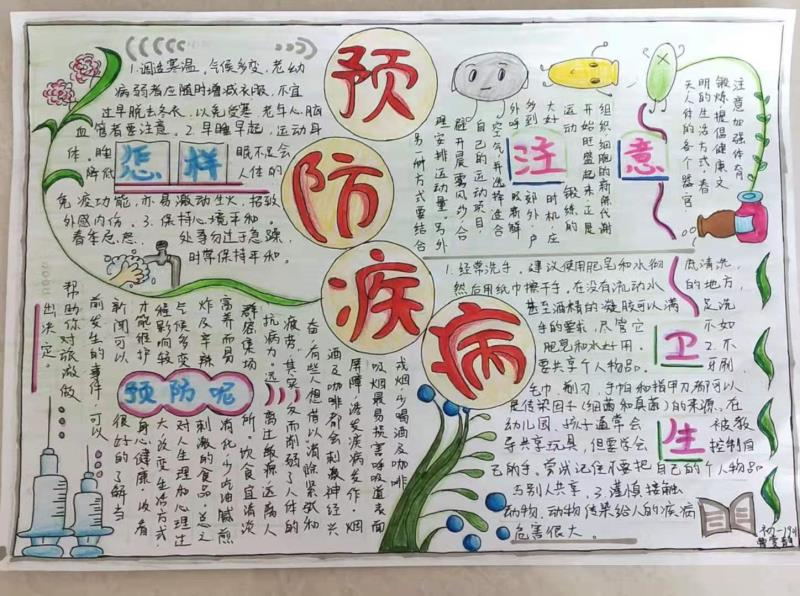 预
防
疾
病
怎 样
1.调适寒温。气候多变,老幼
病弱者应随时增减衣服,不宜
过早脱去冬衣,以免受寒。老年人、脑
血管者要注意。2.早睡早起,运动身
体。睡眠不足会
降低人体的
免疫功能,亦易激动生火,招致
外感内伤。3.保持心境平和。
春季忌怒,处事勿过于急躁,
时常保持平和。
注 意
注意加强体育
锻炼,提倡健康文
明的生活方式。春
天,人体的各个器官
组织细胞的新陈代谢
开始旺盛起来,正是
运动锻炼的
大好时机,应
乡到郊外、户
外呼吸新鲜
空气,并选择适合
自己的运动项目,
避开晨雾风沙,合
理安排运动量。另外
另一种方式要结合
卫
生
1.经常洗手。建议使用肥皂和水彻底清洗,
然后用纸巾擦干手。在没有流动水的地方,
甚至酒精的凝胶可以满足洗
手的要求,尽管它不如
肥皂和水好用。2.不
要共享个人物品。牙刷、
毛巾、剃刀、手帕和指甲刀都可以
是传染因子(细菌和真菌)的来源。在
幼儿园,孩子通常会被教
导共享玩具,但要学会控制自
己的手。尝试记住不要把自己的个人物品
与别人共享。3.谨慎接触
动物。动物传染给人的疾病
危害很大。
预防呢
戒烟少喝酒及咖啡
吸烟最易损害呼吸道表面
屏障,诱发疾病发作。烟
酒及咖啡都会刺激神经兴
奋,有些人想借以消除紧张和
疲劳,其实反而削弱了人体的
抗病力。远离过敏源,远离人
群密集场所。饮食宜清淡
富养而易消化,少吃油腻煎
炸及辛辣刺激的食品。总之
气候多变对人生理和心理过
程影响较大,改变生活方式,
才能维护身心健康。收看
新闻可以很好的了解当
前发生的事件,可以
帮助你对旅游做
出决定。
初一1911